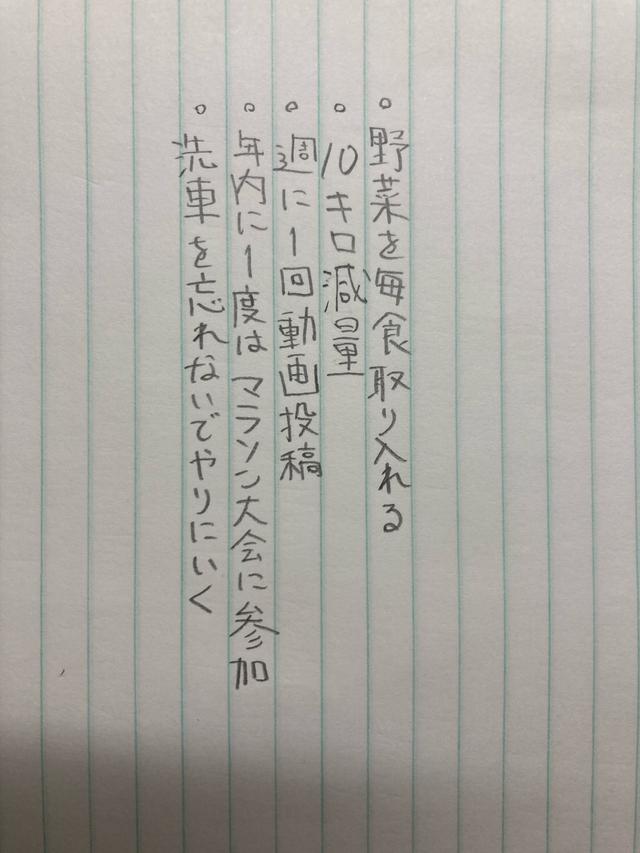 。野菜を毎食取り入れる
。10キロ減量
。週に1回動画投稿
。年内に1度はマラソン大会に参加
。洗車を忘れないでやりにいく